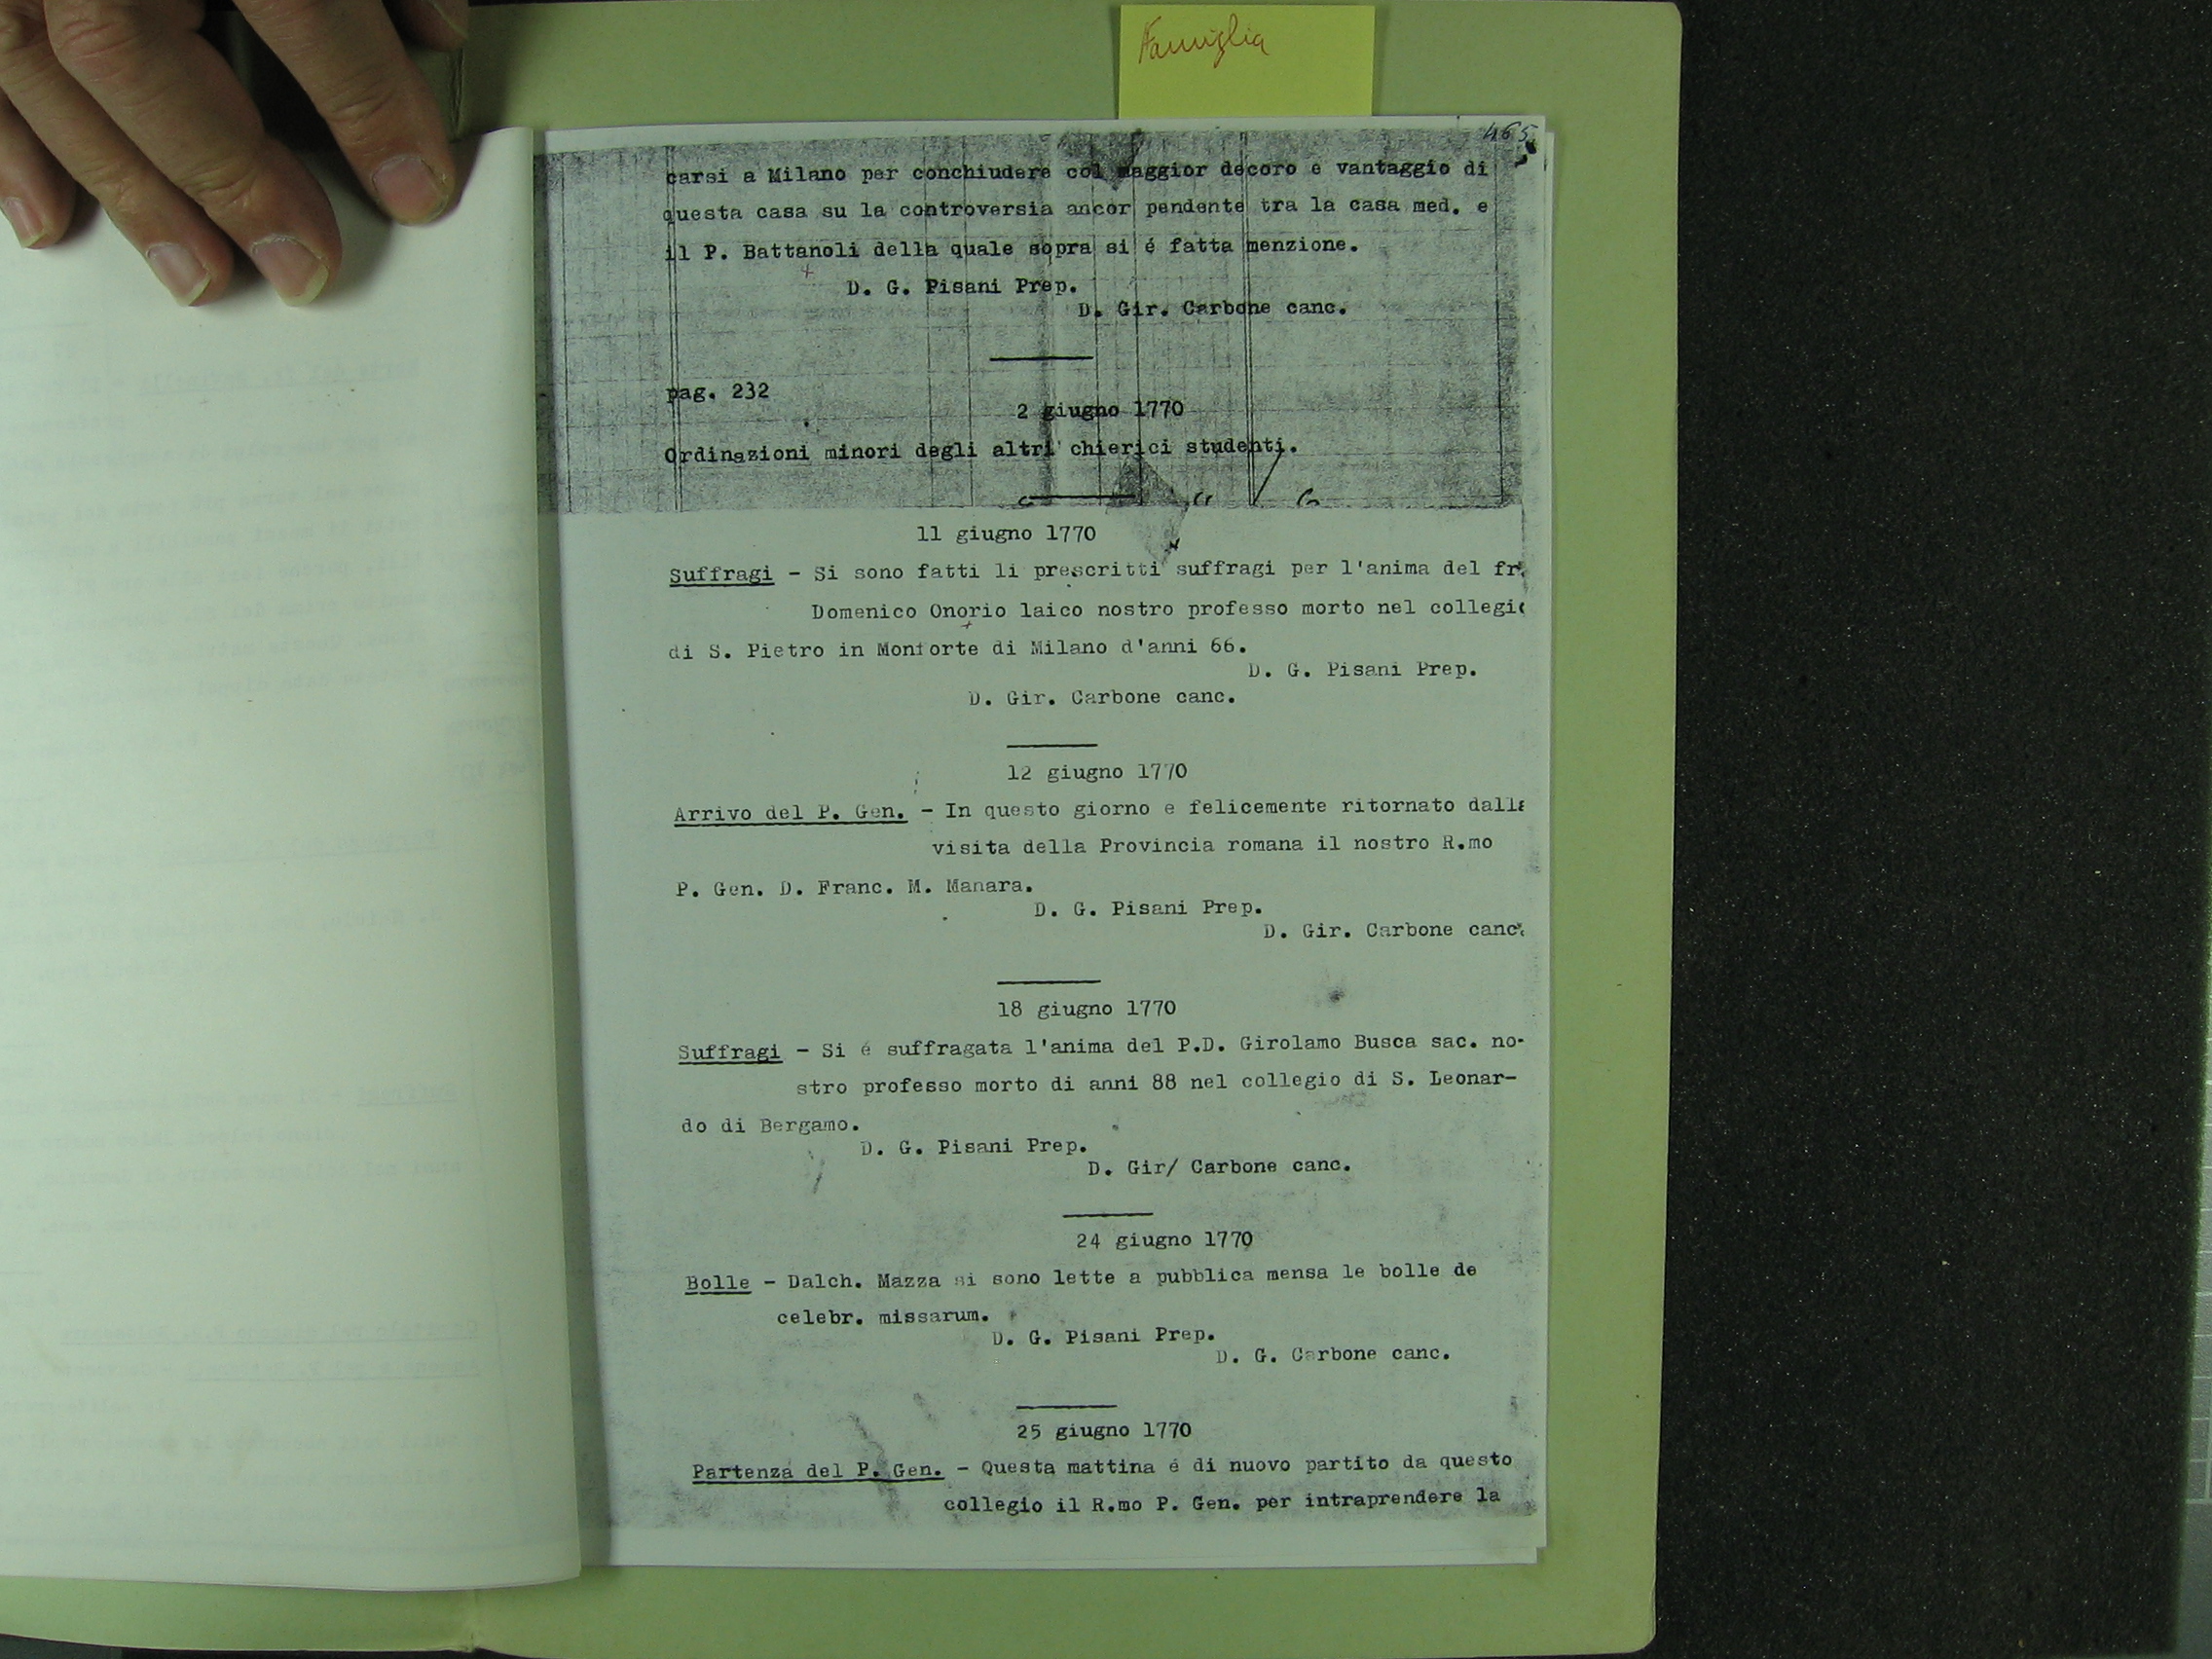 Famiglia
465
carsi a Milano per conchiudere col maggior decoro e vantaggio di
questa casa su la controversia ancor pendente tra la casa med. e
il P. Battanoli della quale sopra si é fatta menzione.
D. G. Pisani Prep.
D. Gir. Carbone canc.
pag. 232
2 giugno 1770
Ordinazioni minori degli altri chierici studenti.
11 giugno 1770
Suffragi - Si sono fatti li prescritti suffragi per l'anima del fr.
Domenico Onorio laico nostro professo morto nel collegio
di S. Pietro in Monforte di Milano d'anni 66.
D. G. Pisani Prep.
D. Gir. Carbone canc.
12 giugno 1770
Arrivo del P. Gen. - In questo giorno e felicemente ritornato dalla
visita della Provincia romana il nostro R.mo
P. Gen. D. Franc. M. Manara.
D. G. Pisani Prep.
D. Gir. Carbone canc.
18 giugno 1770
Suffragi - Si é suffragata l'anima del P.D. Girolamo Busca sac. no-
stro professo morto di anni 88 nel collegio di S. Leonar-
do di Bergamo.
D. G. Pisani Prep.
D. Gir/ Carbone canc.
24 giugno 1770
Bolle - Dalch. Mazza si sono lette a pubblica mensa le bolle de
celebr. missarum.
D. G. Pisani Prep.
D. G. Carbone canc.
25 giugno 1770
Partenza del P. Gen. - Questa mattina é di nuovo partito da questo
collegio il R.mo P. Gen. per intraprendere la